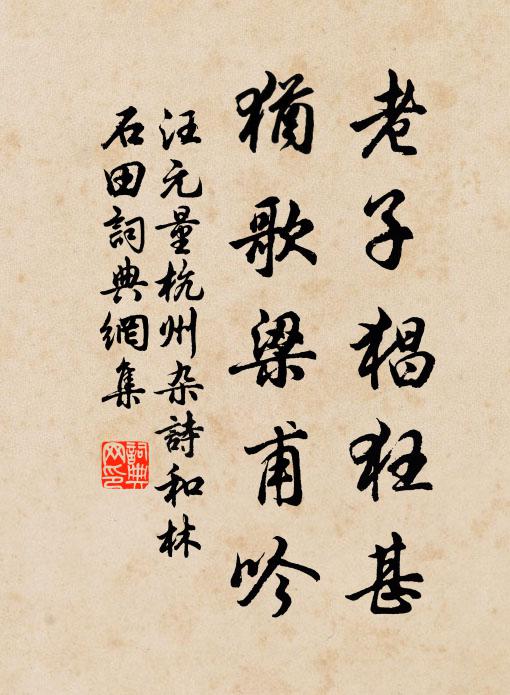 老子猖狂甚
猶歌梁甫吟
汪元量杭州杂詩和林
石田詞典網集
詞典
网印